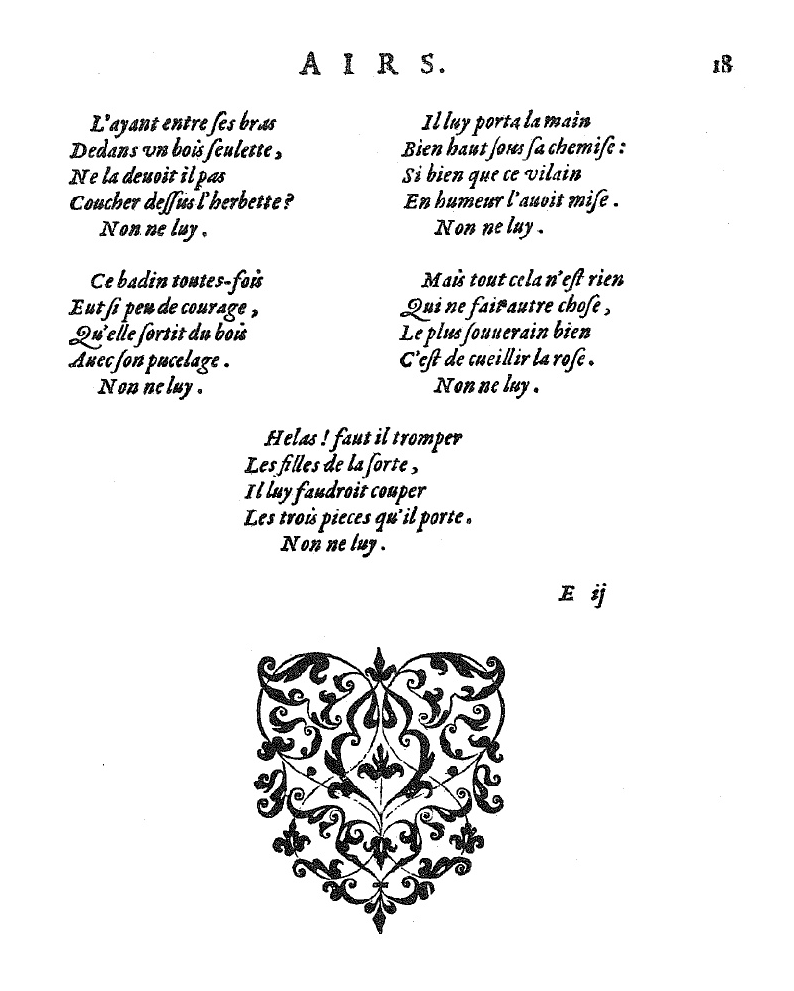 AIRS.
18
L'ayant entre ſes bras
Dedans vn bois ſeulette,
Ne la deuoit il pas
Coucher deſſus l'herbette?
Non ne luy.
Ce badin toutes-fois
Eut ſi peu de courage,
Qu'elle ſortit du bois
Auec ſon pucelage.
Non ne luy.
Il luy porta la main
Bien haut ſous ſa chemiſe:
Si bien que ce vilain
En humeur l'auoit miſe.
Non ne luy.
Mais tout cela n'eſt rien
Qui ne fait autre choſe,
Le plus ſouuerain bien
C'eſt de cueillir la roſe.
Non ne luy.
Helas! faut il tromper
Les filles de la ſorte,
Il luy faudroit couper
Les trois pieces qu'il porte.
Non ne luy.
E ij